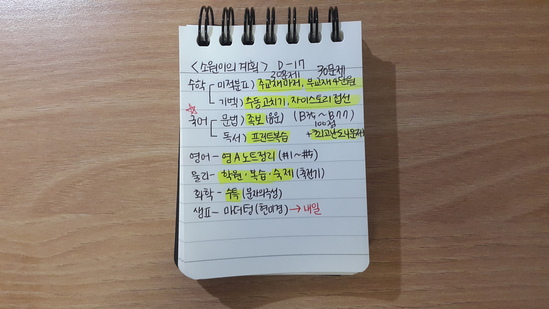 <소원이의 계획> D-17
30문제 30문제
수학 미적분Ⅱ) 주교재 마저, 부교재 4단원
기벡) 수동고치기, 자이스토리 접선
국어 문법) 족보(음운) (B35~B77)
100점
독서) 프린트복습 + 최고난도
영어 - 영A노트정리 (#1~#5)
물리 - 학원·복습·숙제 (축전기)
화학 - 수특 (분자의극성)
생Ⅱ - 마더텅 (현미경) → 내일